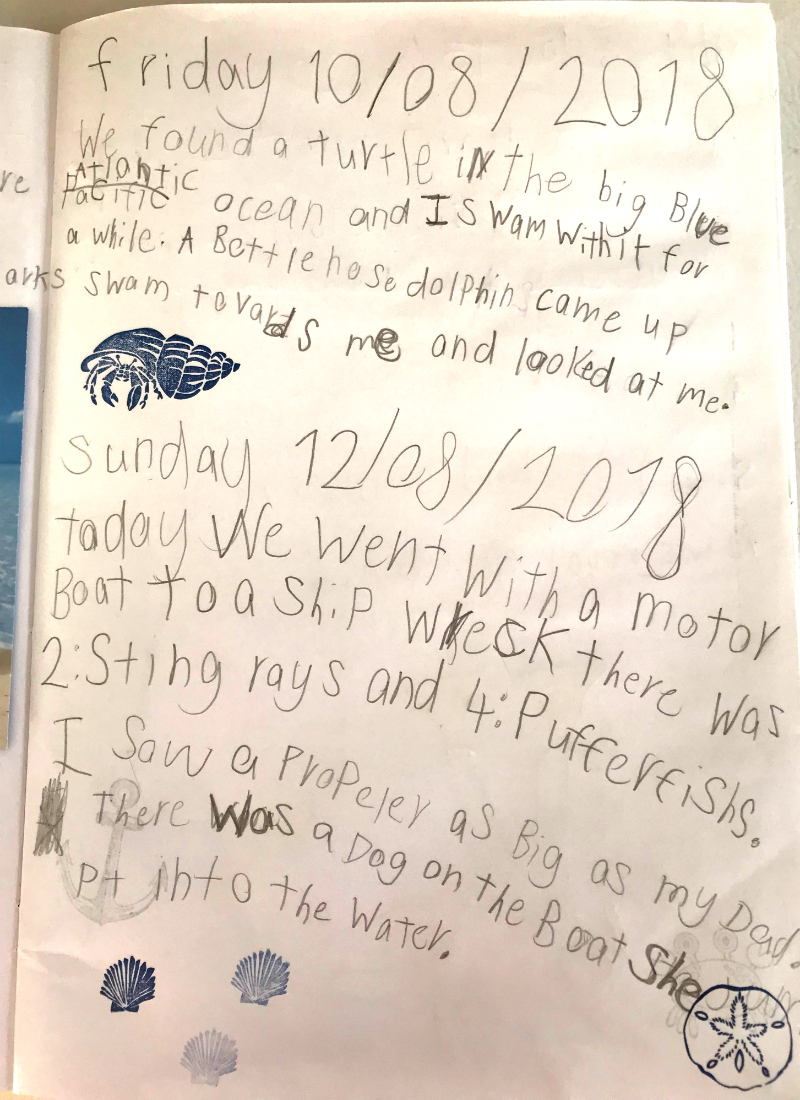 friday 10/08/2018
We found a turtle in the big Blue
Atlantic
Pacific ocean and I swam with it for
a while. A Bottlehose dolphin came up
swam tovards me and looked at me.
re
arks
sunday 12/08/2018
today We went with a motor
Boat to a Ship Wreck there was
2:Sting rays and 4:Pufferfishs.
I Saw a Propeler as Big as my Dad.
there Was a Dog on the Boat She
pt into the Water.